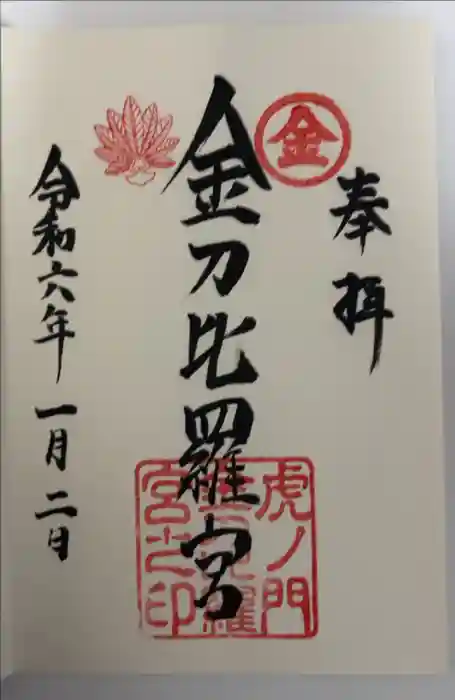 奉拝
金
金刀比羅宮
虎ノ門
金刀比羅
宮之印
令和六年 一月 二日